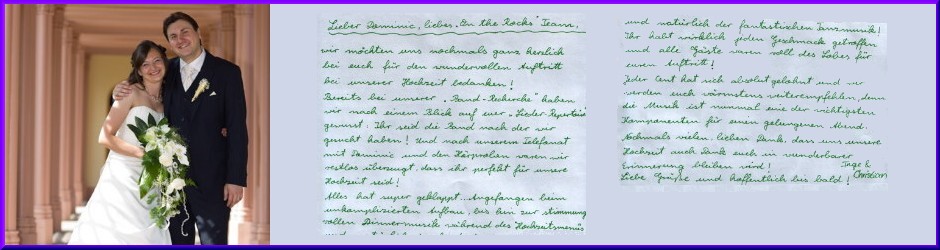 Lieber Dominic, liebes "On the Rocks" Team,
wir möchten uns nochmals ganz herzlich
bei euch für den wundervollen Auftritt
bei unserer Hochzeit bedanken!
Bereits bei unserer "Band-Recherche" haben
wir nach einem Blick auf euer "Lieder-Repertoire"
gewusst: Ihr seid die Band nach der wir
gesucht haben! Und nach unserem Telefonat
mit Dominic und den Hörproben waren wir
restlos überzeugt, dass ihr perfekt für unsere
Hochzeit seid!
Alles hat super geklappt... Angefangen beim
unkomplizierten Aufbau, bis hin zur stimmung-
vollen Dinnermusik während des Hochzeitsmenüs
und natürlich der fantastischen Tanzmusik!
Ihr habt wirklich jeden Geschmack getroffen
und alle Gäste waren voll des Lobes für
euren Auftritt!
Jeder Cent hat sich absolut gelohnt und wir
werden euch wärmstens weiterempfehlen, denn
die Musik ist nunmal eine der wichtigsten
Komponenten für einen gelungenen Abend.
Nochmals vielen lieben Dank, dass uns unsere
Hochzeit auch Dank euch in wunderbarer
Erinnerung bleiben wird!
Liebe Grüße und hoffentlich bis bald!
Inge &
Christian